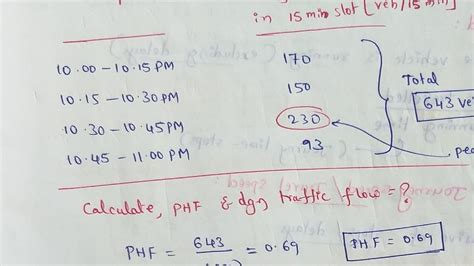 in 15 min slot [veh/15 min]
10.00 – 10.15 PM 170
10.15 – 10.30 PM 150
10.30 – 10.45 PM 230
10.45 – 11.00 PM 93
Total
643 ve
pea
Calculate, PHF & dgn traffic flow = ?
PHF = 643 = 0.69
PHF = 0.69